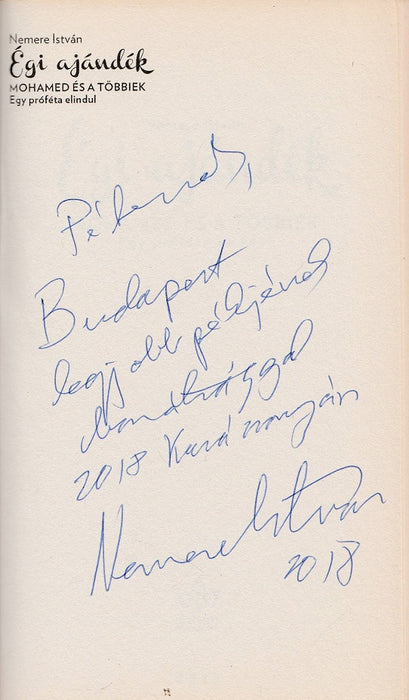 Nemere István
Égi ajándék
MOHAMED ÉS A TÖBBIEK
Egy próféta elindul
Péternek,
Budapest
legjobb
barátsággal
2018 Karácsonyán
Nemere István
2018